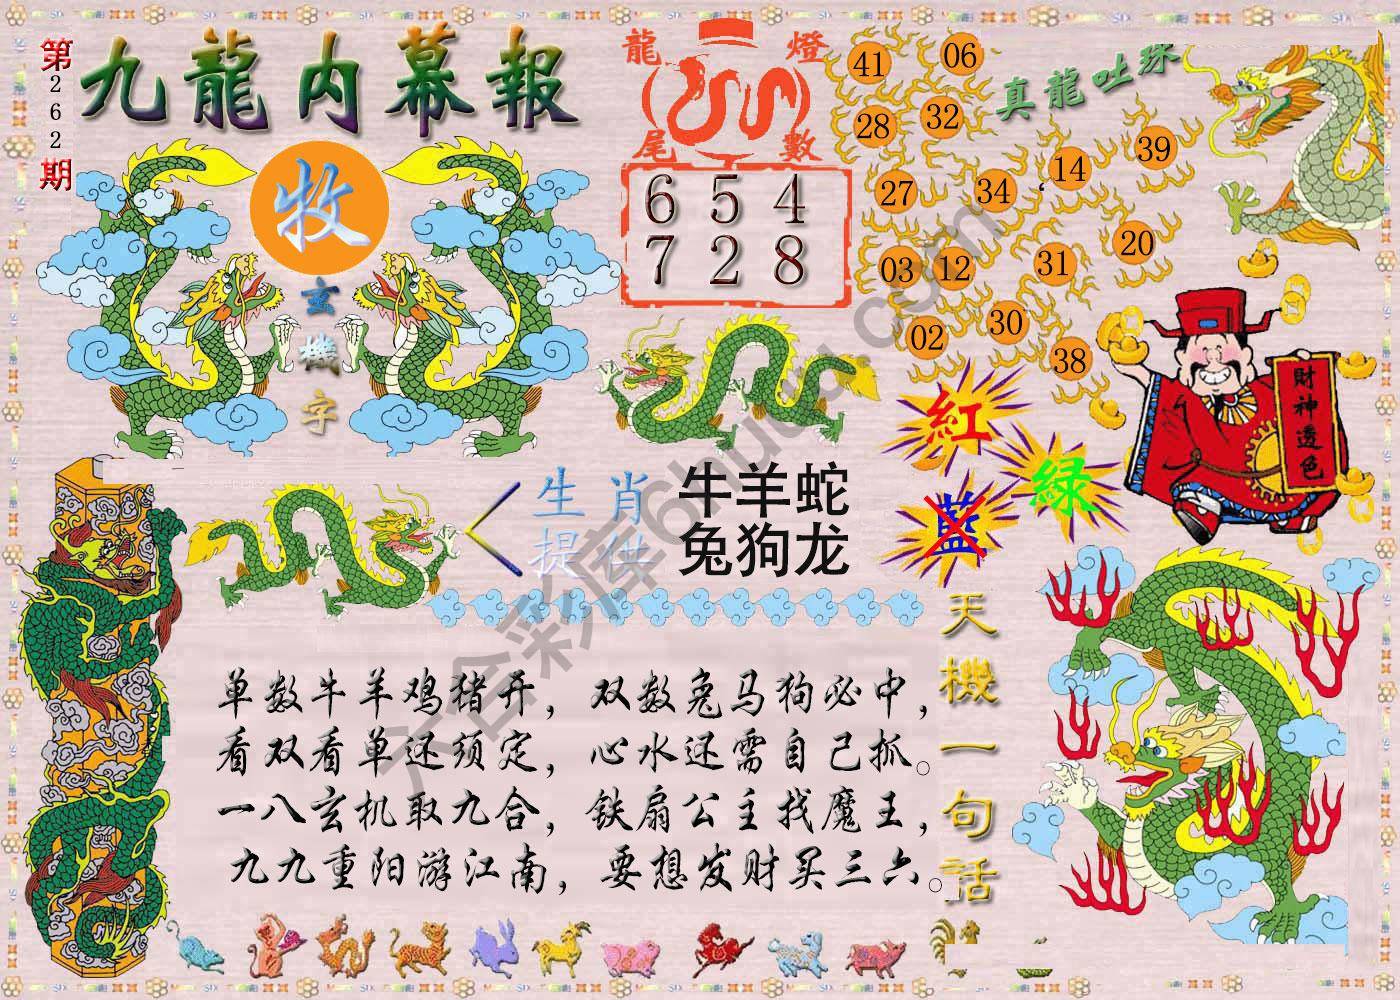 第262期
九龍内幕報
牧
玄機字
龍燈尾數
6 5 4
7 2 8
真龍吐珠
41 06
28 32
27 34 14 39
03 12 31 20
02 30 38
財神透色
紅
绿
藍
生肖
提供
牛羊蛇
兔狗龙
天機一句話
单数牛羊鸡猪开，双数兔马狗必中，
看双看单还须定，心水还需自己抓。
一八玄机取九合，铁扇公主找魔王，
九九重阳游江南，要想发财买三六。
六合彩库6huu.com